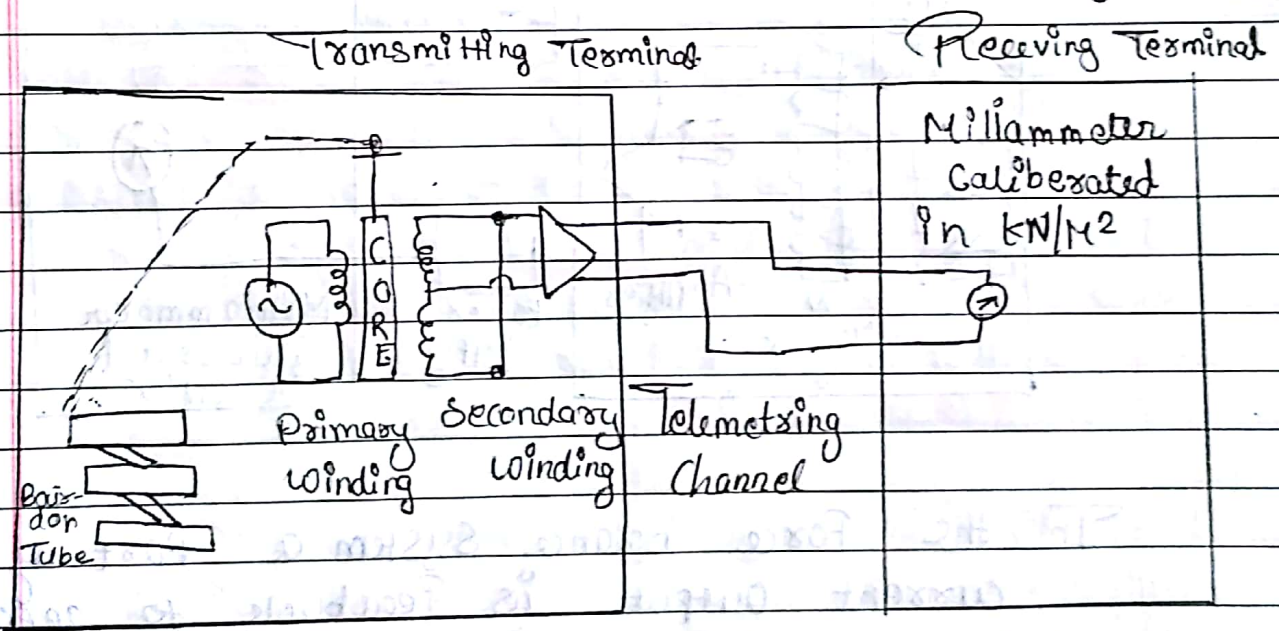 Transmitting Terminal
Receving Terminal
Milliammeter
Caliberated
in KN/M²
CORE
Primary
Winding
Secondary
Winding
Telemetring
Channel
Tube